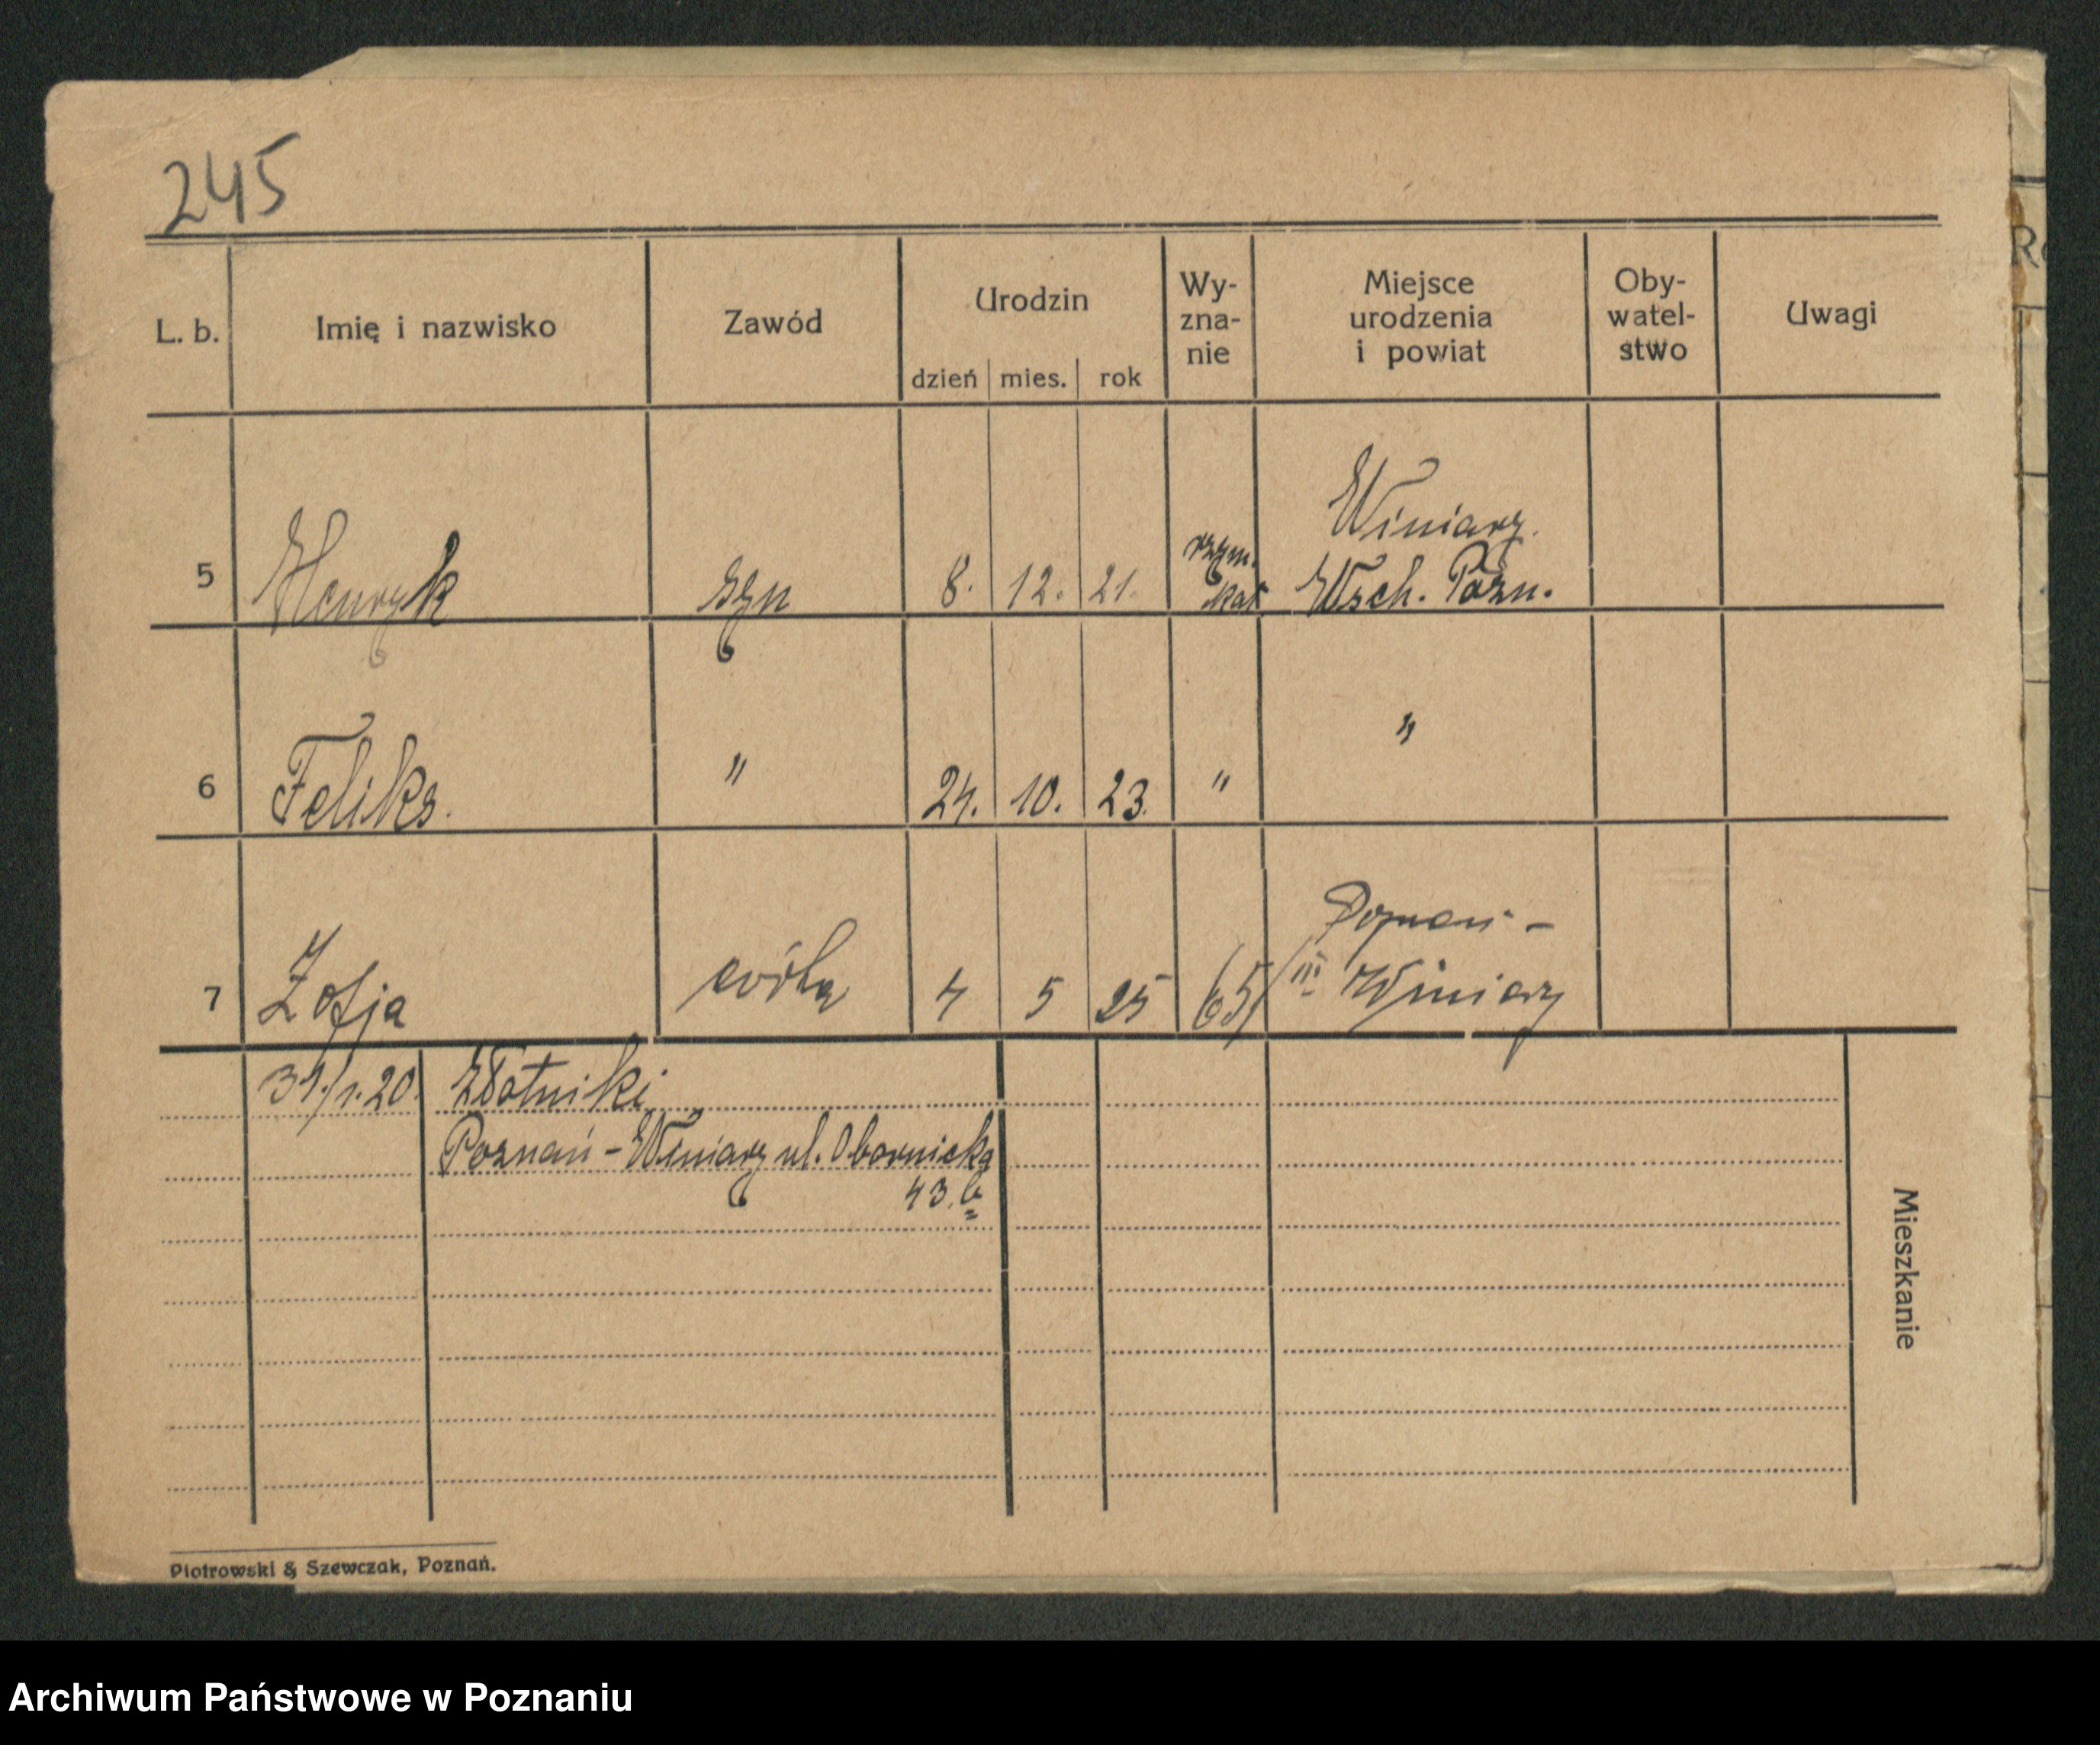 245
L. b. Imię i nazwisko Zawód Urodzin Wy-zna-nie Miejsce urodzenia i powiat Oby-watel-stwo Uwagi
dzień mies. rok
Winiary
5 Henryk syn 8. 12. 21. rzym. kat Wsch. Pozn.
6 Feliks. " 24. 10. 23. " "
Poznań -
7 Zofja córka 4 5 25 (65/III Winiary
31./1.20. Złotniki
Poznań - Winiary ul. Obornicka
43. b
Mieszkanie
Piotrowski & Szewczak, Poznań.
Archiwum Państwowe w Poznaniu